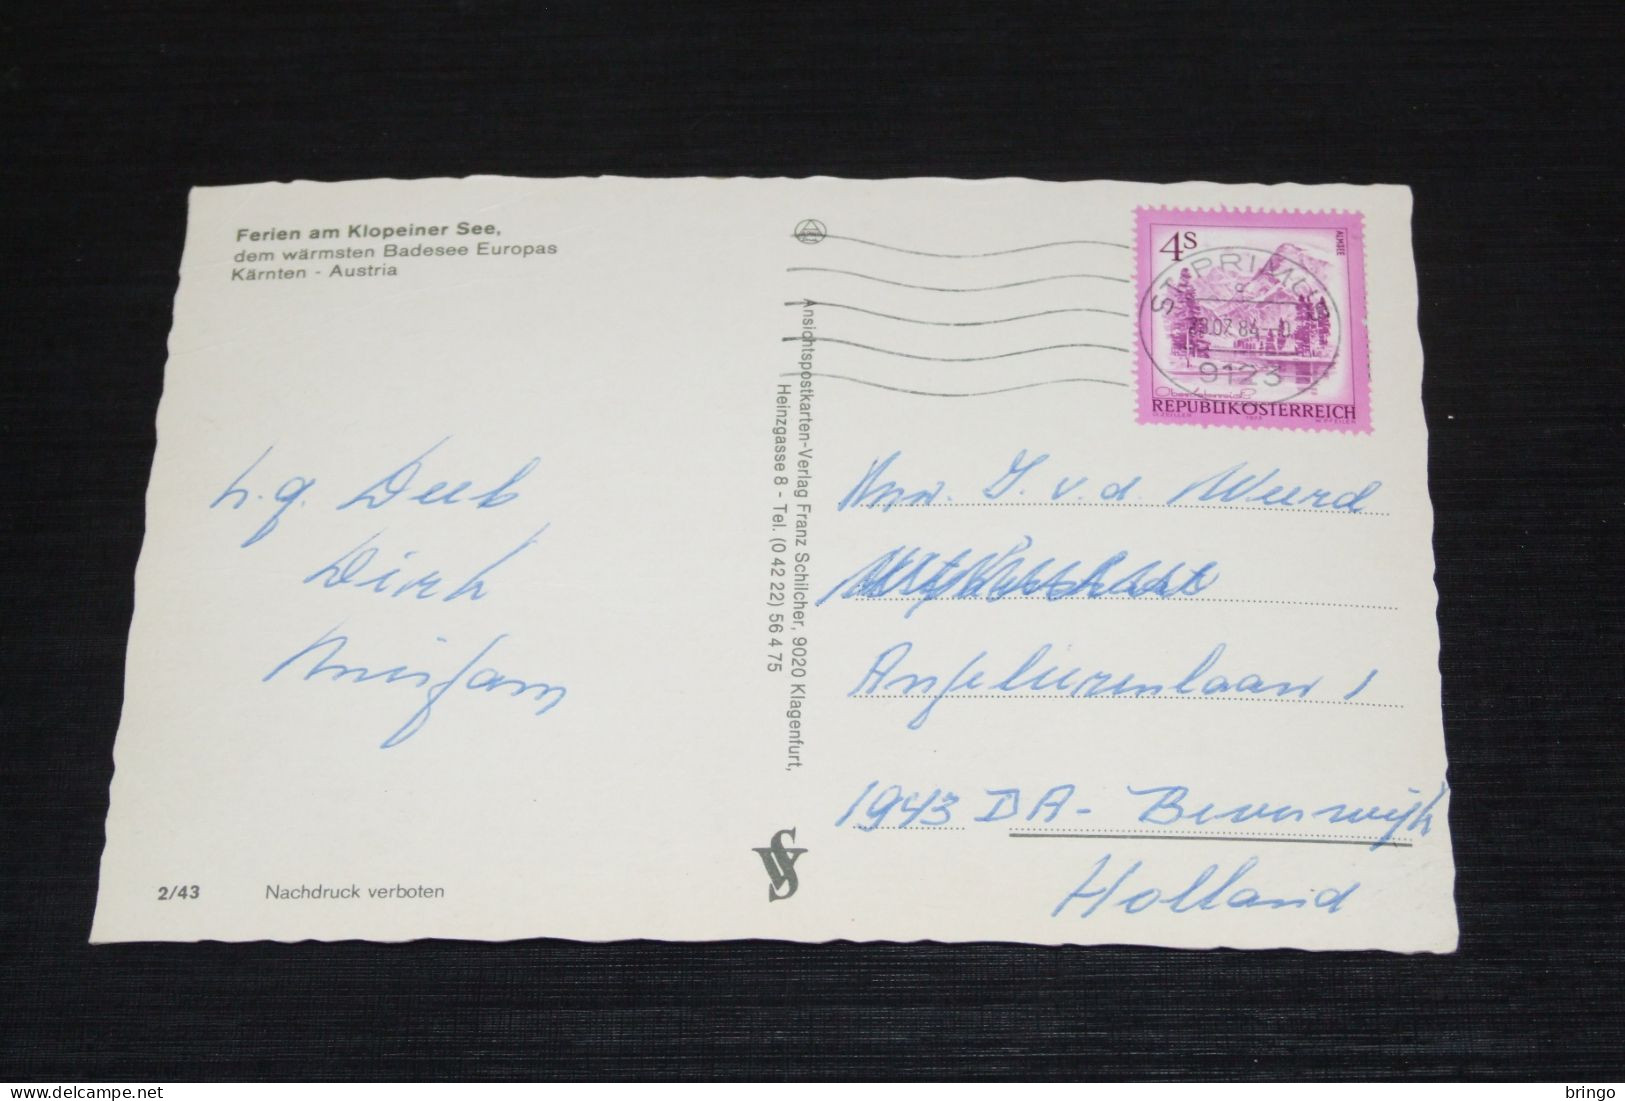 Ferien am Klopeiner See,
dem wärmsten Badesee Europas
Kärnten - Austria
h. g. Deeb
Dirk
Mirjam
2/43 Nachdruck verboten
Ansichtspostkarten-Verlag Franz Schilcher, 9020 Klagenfurt,
Heinzgasse 8 - Tel. (0 42 22) 56 4 75
4S
ALMSEE
ST. PRIMUS
.07.84
9123
REPUBLIK ÖSTERREICH
J. v. d. Weerd
Anjelierenlaan 1
1943 DA - Beverwijk
Holland
bringo